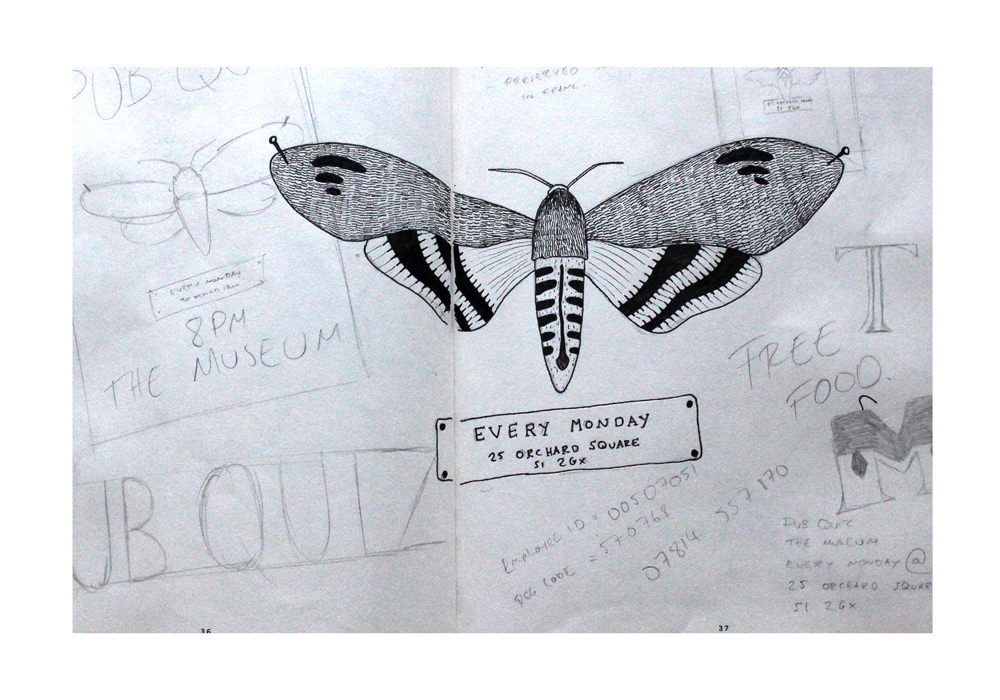 PUB QU
PRESERVED
IN FRAME.
EVERY MONDAY
8PM
THE MUSEUM
T
FREE
FOOD.
M
EVERY MONDAY
25 ORCHARD SQUARE
S1 2GX
UB QUIZ
EMPLOYEE ID = 00507051
REG CODE = 570768
07814 557170
PUB QUIZ
THE MUSEUM
EVERY MONDAY @
25 ORCHARD SQUARE
S1 2GX
36
37